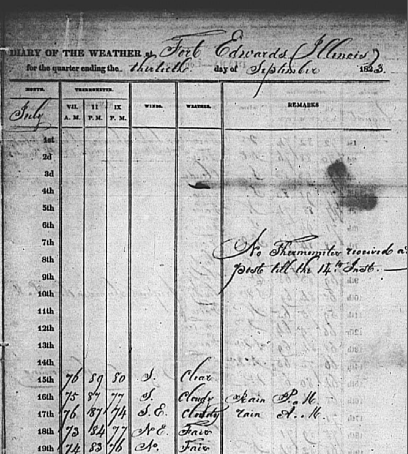 DIARY OF THE WEATHER at Fort Edwards (Illinois)
for the quarter ending the thirtieth day of September 1823.
MONTH. THERMOMETER. WINDS. WEATHER. REMARKS
July VII. II IX
A. M. P. M. P. M.
1st
2d
3d
4th
5th
6th
7th
8th No Thermometer received a
9th post till the 14th Inst.
10th
11th
12th
13th
14th
15th 76 89 80 S. Clear
16th 75 87 77 S. Cloudy Rain P. M.
17th 76 87 74 S. E. Cloudy rain A. M.
18th 73 84 77 N E. Fair
19th 74 83 76 N. Fair